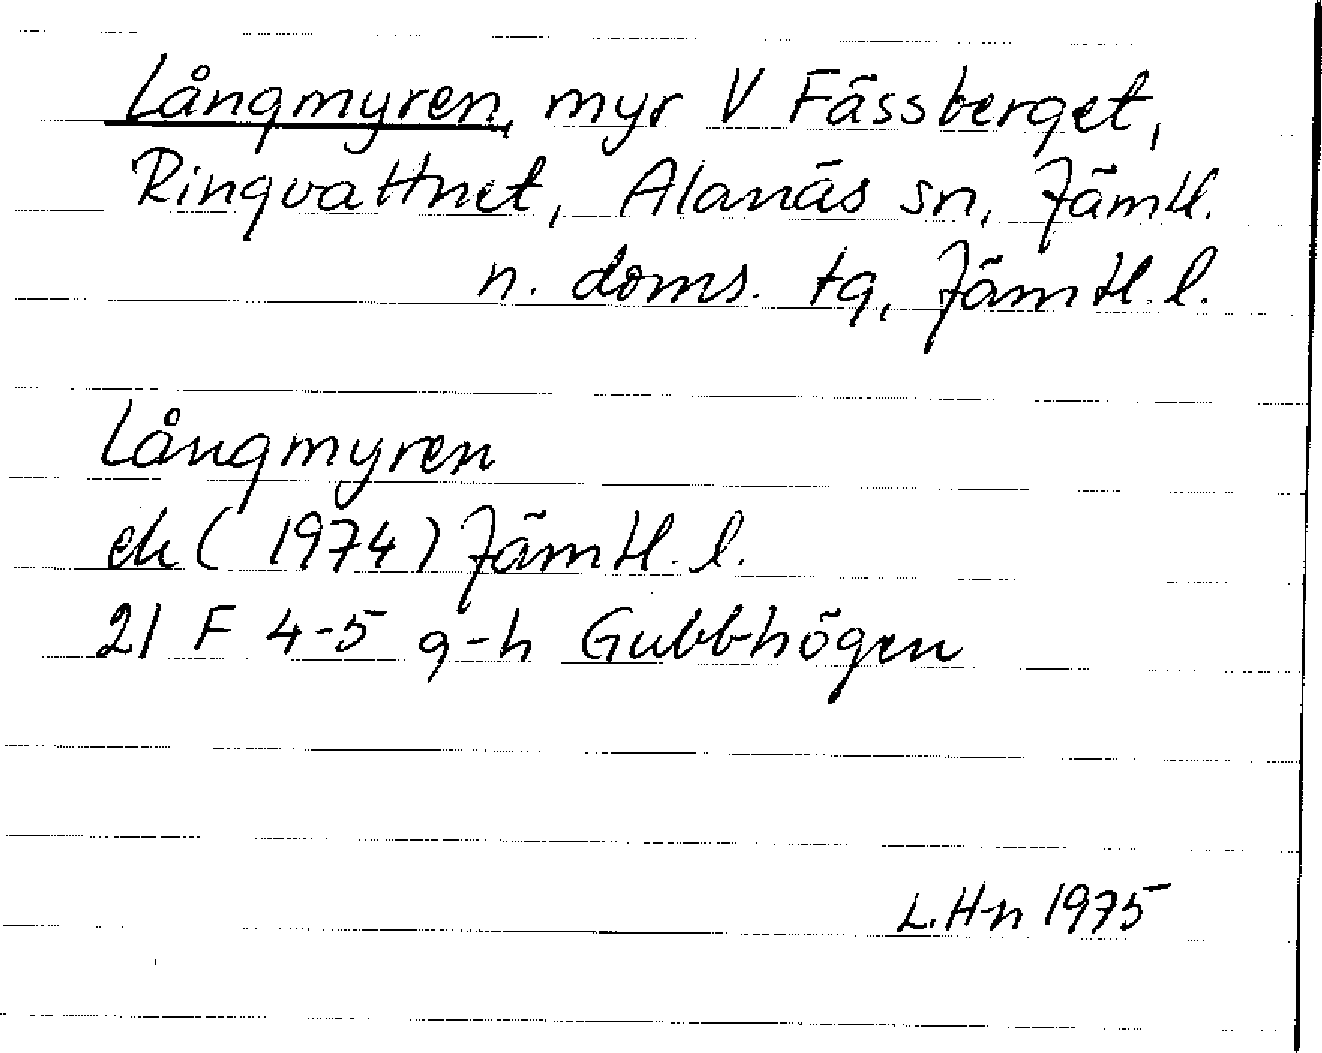 Långmyren, myr V Fässberget,
Ringvattnet, Alanäs sn, Jämtl.
n. doms. tg, Jämtl. l.
Långmyren
ek (1974) Jämtl. l.
21 F 4-5 g-h Gubbhögen
L.H-n 1975